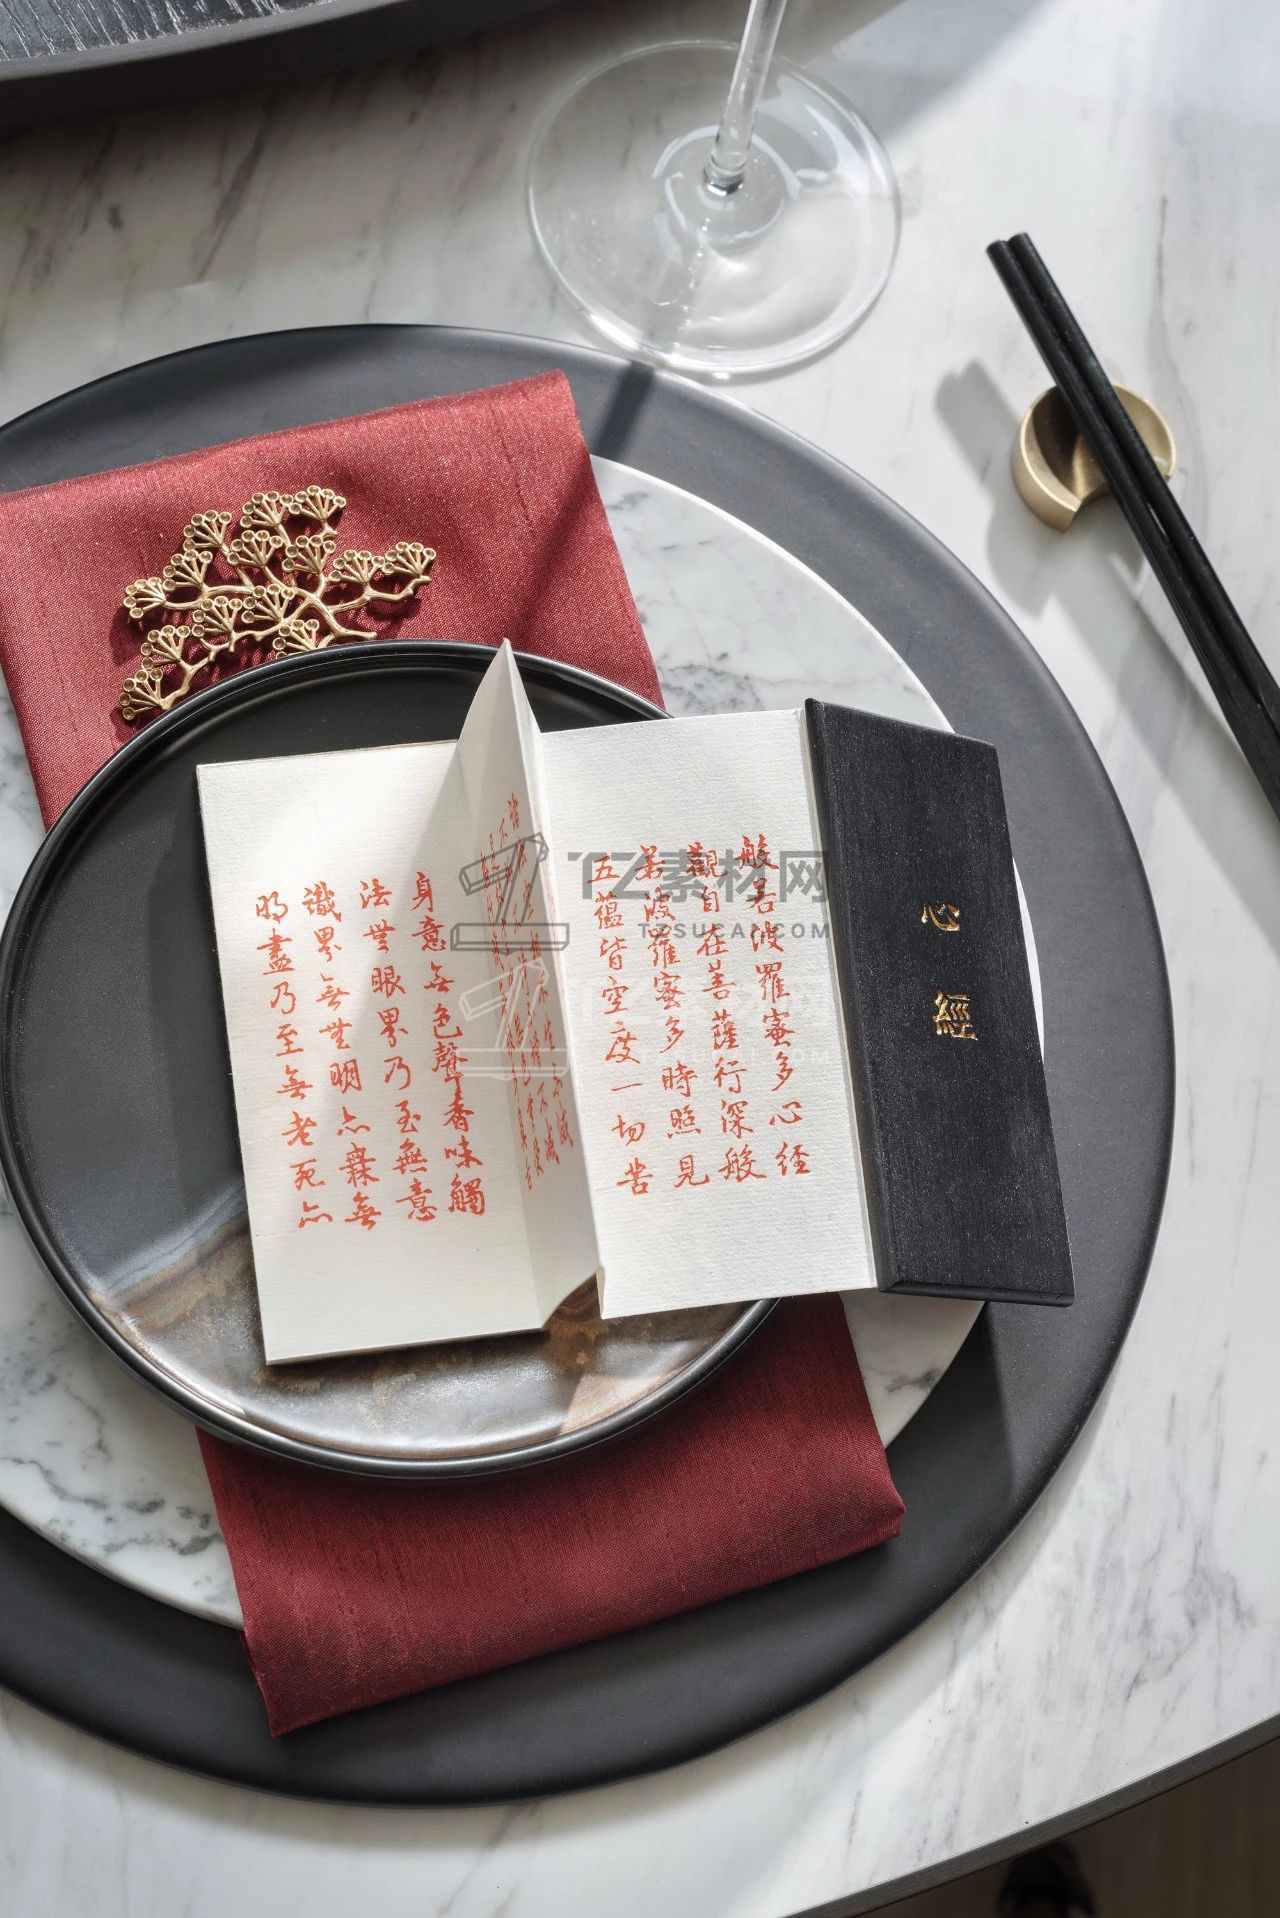 心經
般若波羅蜜多心经
觀自在菩薩行深般
若波羅蜜多時照見
五蕴皆空度一切苦
身意無色聲香味觸
法無眼界乃至無意
識界無無明亦無無
明盡乃至無老死亦
TZ素材网
TZSUCAI.COM